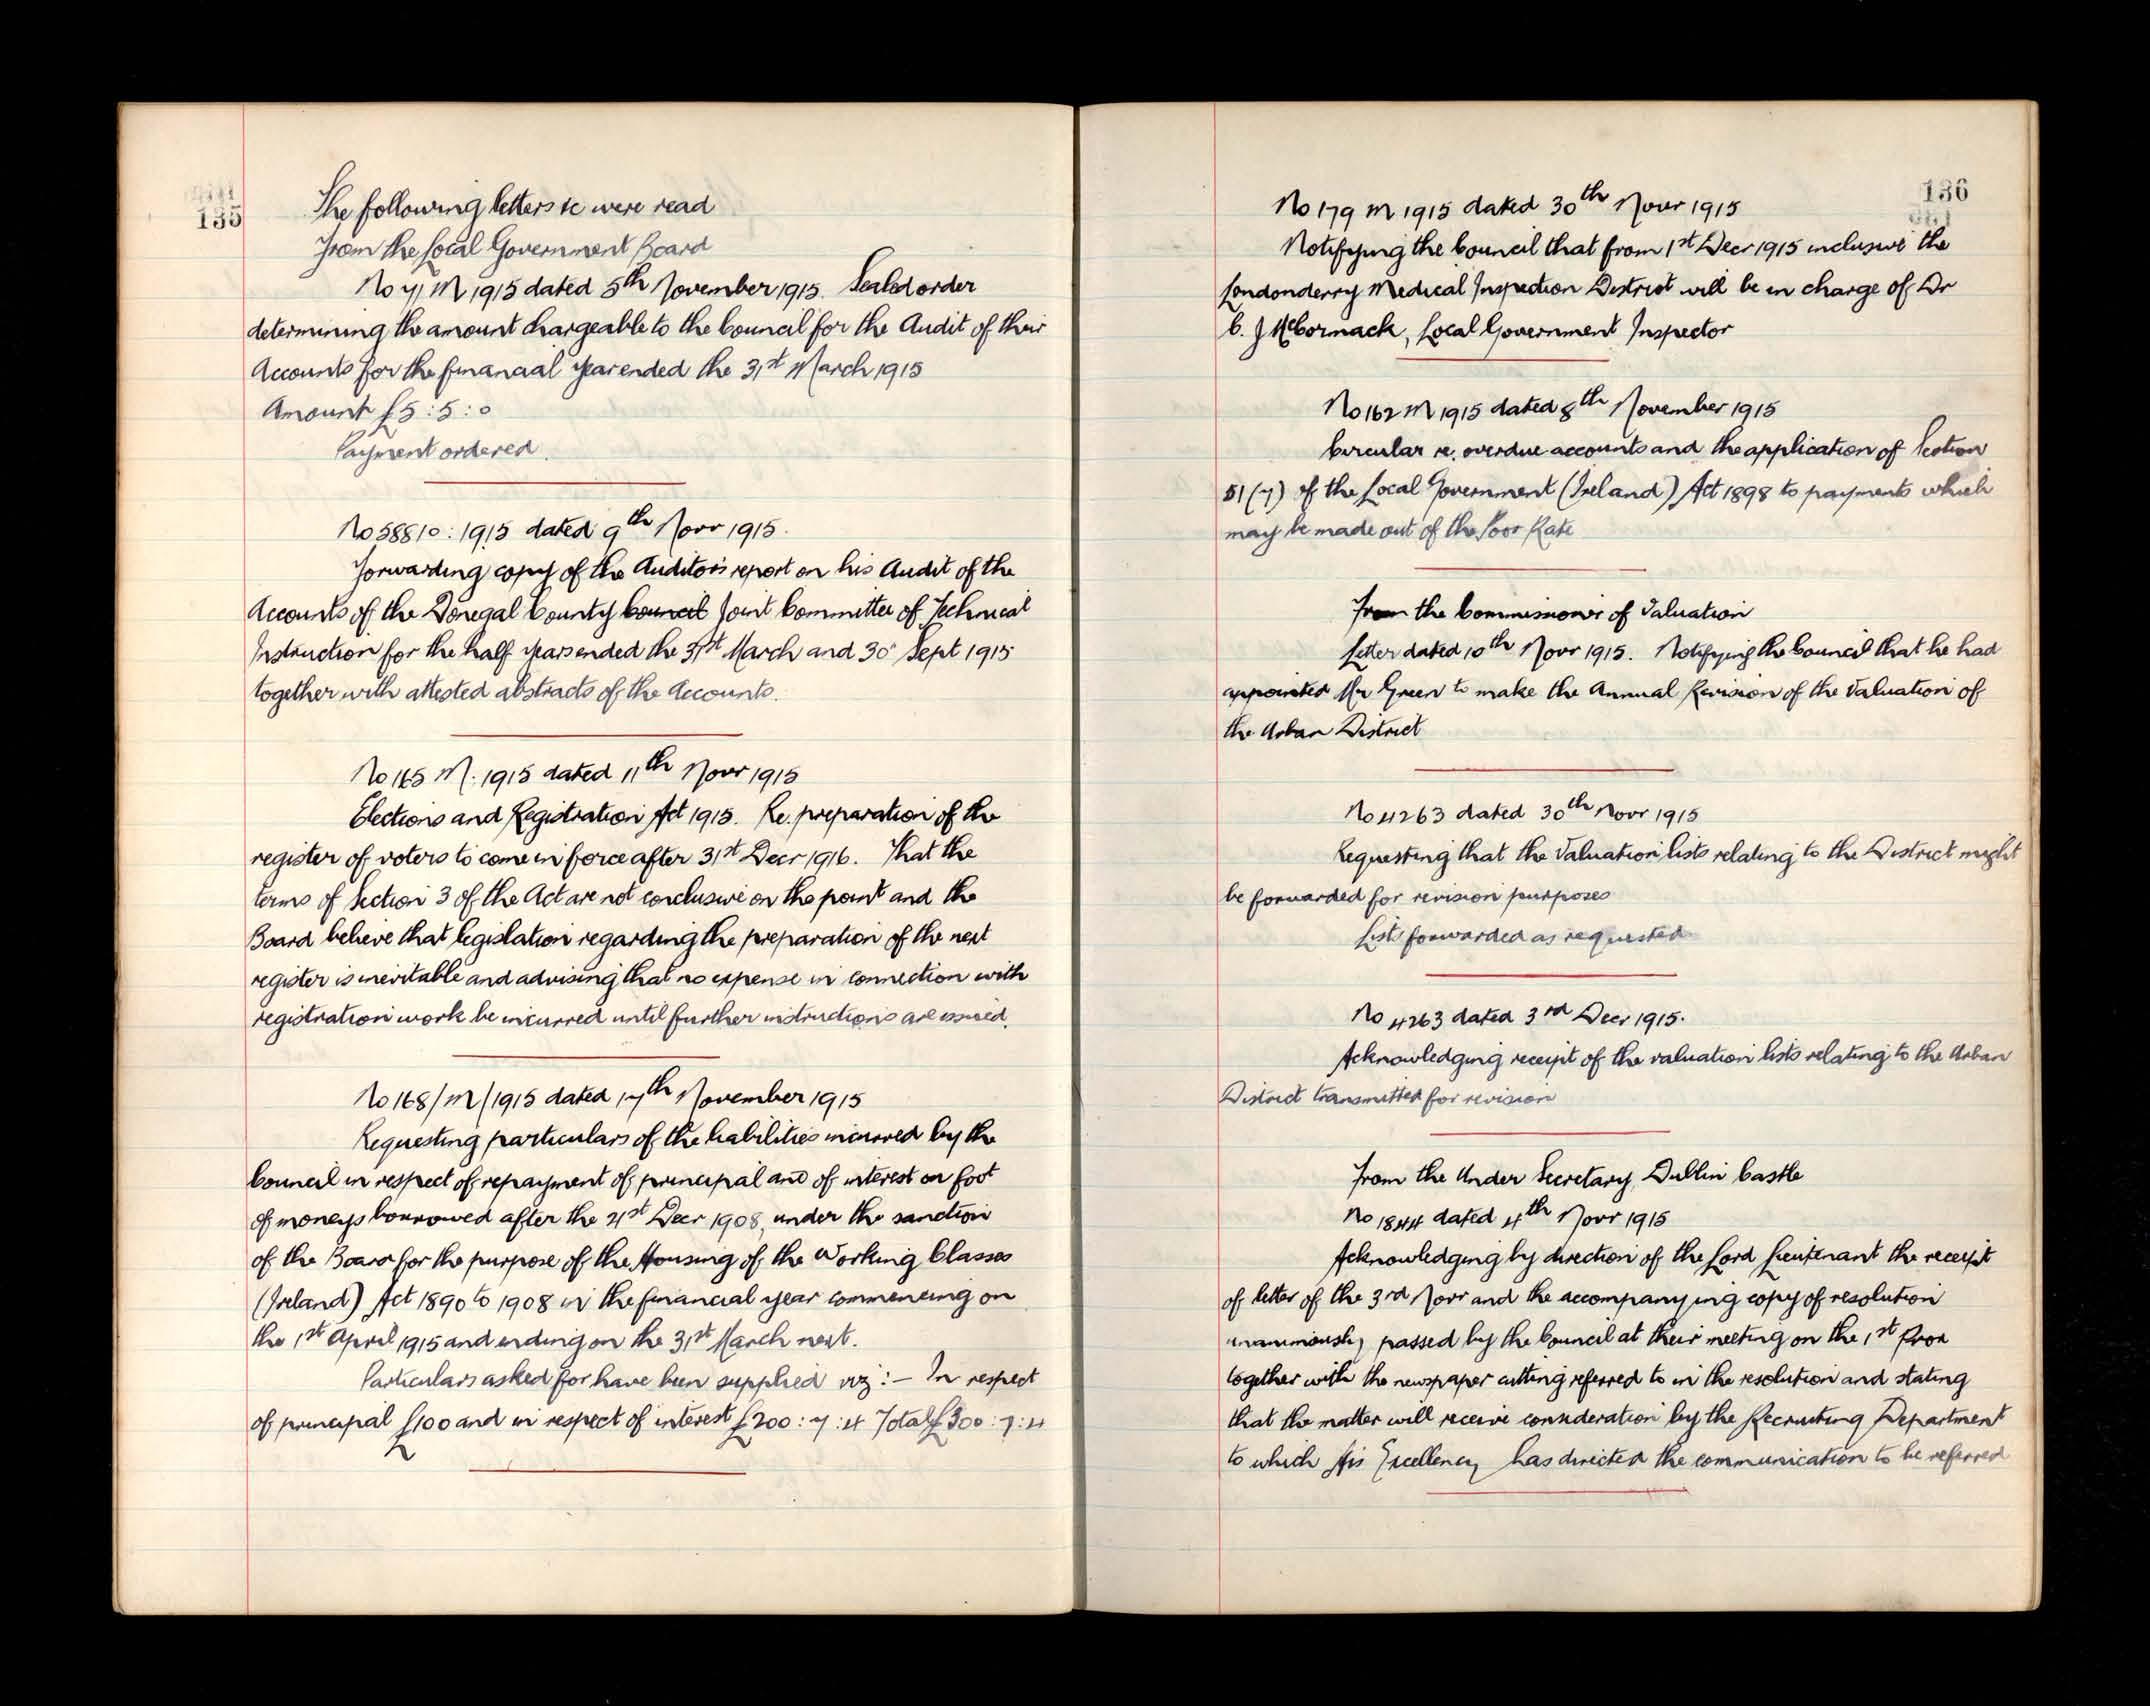 135
The following letters &c were read
From the Local Government Board
No 71 M 1915 dated 5th November 1915. Sealed order
determining the amount chargeable to the Council for the Audit of their
Accounts for the financial year ended the 31st March 1915
Amount £5 : 5 : 0
Payment ordered.
No 58810 : 1915 dated 9th Novr 1915.
Forwarding copy of the Auditor's report on his Audit of the
Accounts of the Donegal County Council Joint Committee of Technical
Instruction for the half years ended the 31st March and 30th Sept 1915
together with attested abstracts of the Accounts.
No 165 M. 1915 dated 11th Novr 1915
Elections and Registration Act 1915. Re. preparation of the
register of voters to come in force after 31st Decr 1916. That the
terms of Section 3 of the Act are not conclusive on the point and the
Board believe that legislation regarding the preparation of the next
register is inevitable and advising that no expense in connection with
registration work be incurred until further instructions are issued.
No 168/M/1915 dated 17th November 1915
Requesting particulars of the liabilities incurred by the
Council in respect of repayment of principal and of interest on foot
of moneys borrowed after the 21st Decr 1908, under the sanction
of the Board for the purpose of the Housing of the Working Classes
(Ireland) Act 1890 to 1908 in the financial year commencing on
the 1st April 1915 and ending on the 31st March next.
Particulars asked for have been supplied viz :- In respect
of principal £100 and in respect of interest £200 : 7 : 4 Total £300 : 7 : 4
136
No 179 M 1915 dated 30th Novr 1915
Notifying the Council that from 1st Decr 1915 inclusive the
Londonderry Medical Inspection District will be in charge of Dr
C. J McCormack, Local Government Inspector
No 162 M 1915 dated 8th November 1915
Circular re. overdue accounts and the application of Section
51 (7) of the Local Government (Ireland) Act 1898 to payments which
may be made out of the Poor Rate
From the Commissioner of Valuation
Letter dated 10th Novr 1915. Notifying the Council that he had
appointed Mr Green to make the Annual Revision of the Valuation of
the Urban District
No 4263 dated 30th Novr 1915
Requesting that the Valuation lists relating to the District might
be forwarded for revision purposes
Lists forwarded as requested
No 4263 dated 3rd Decr 1915.
Acknowledging receipt of the valuation lists relating to the Urban
District transmitted for revision
From the Under Secretary, Dublin Castle
No 1844 dated 4th Novr 1915
Acknowledging by direction of the Lord Lieutenant the receipt
of letter of the 3rd Novr and the accompanying copy of resolution
unanimously passed by the Council at their meeting on the 1st
together with the newspaper cutting referred to in the resolution and stating
that the matter will receive consideration by the Recruiting Department
to which His Excellency has directed the communication to be referred